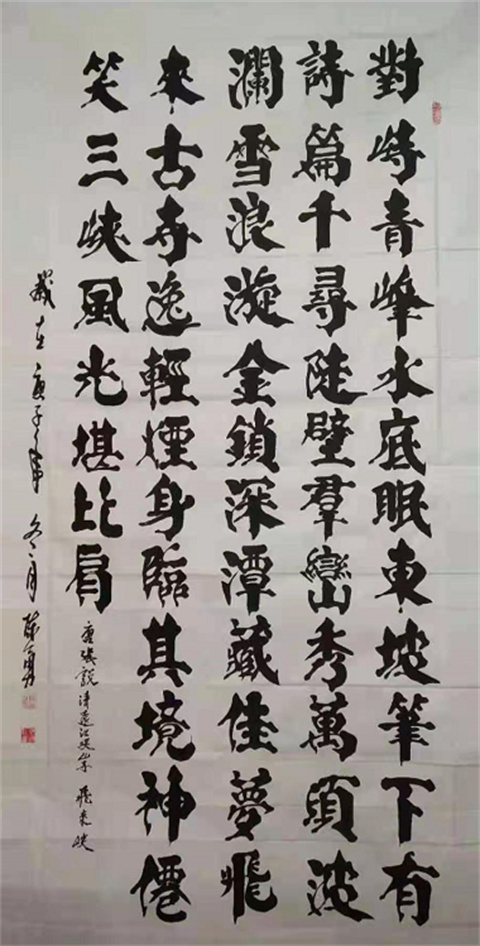 對峙青峰水底眠東坡筆下有
詩篇千尋陡壁羣巒秀萬頃波
瀾雪浪漩金鎖深潭藏佳夢飛
來古寺逸輕煙身臨其境神僊
笑三峽風光堪比肩
唐張說清遠江峽山寺 飛來峽
歲在庚子年冬月